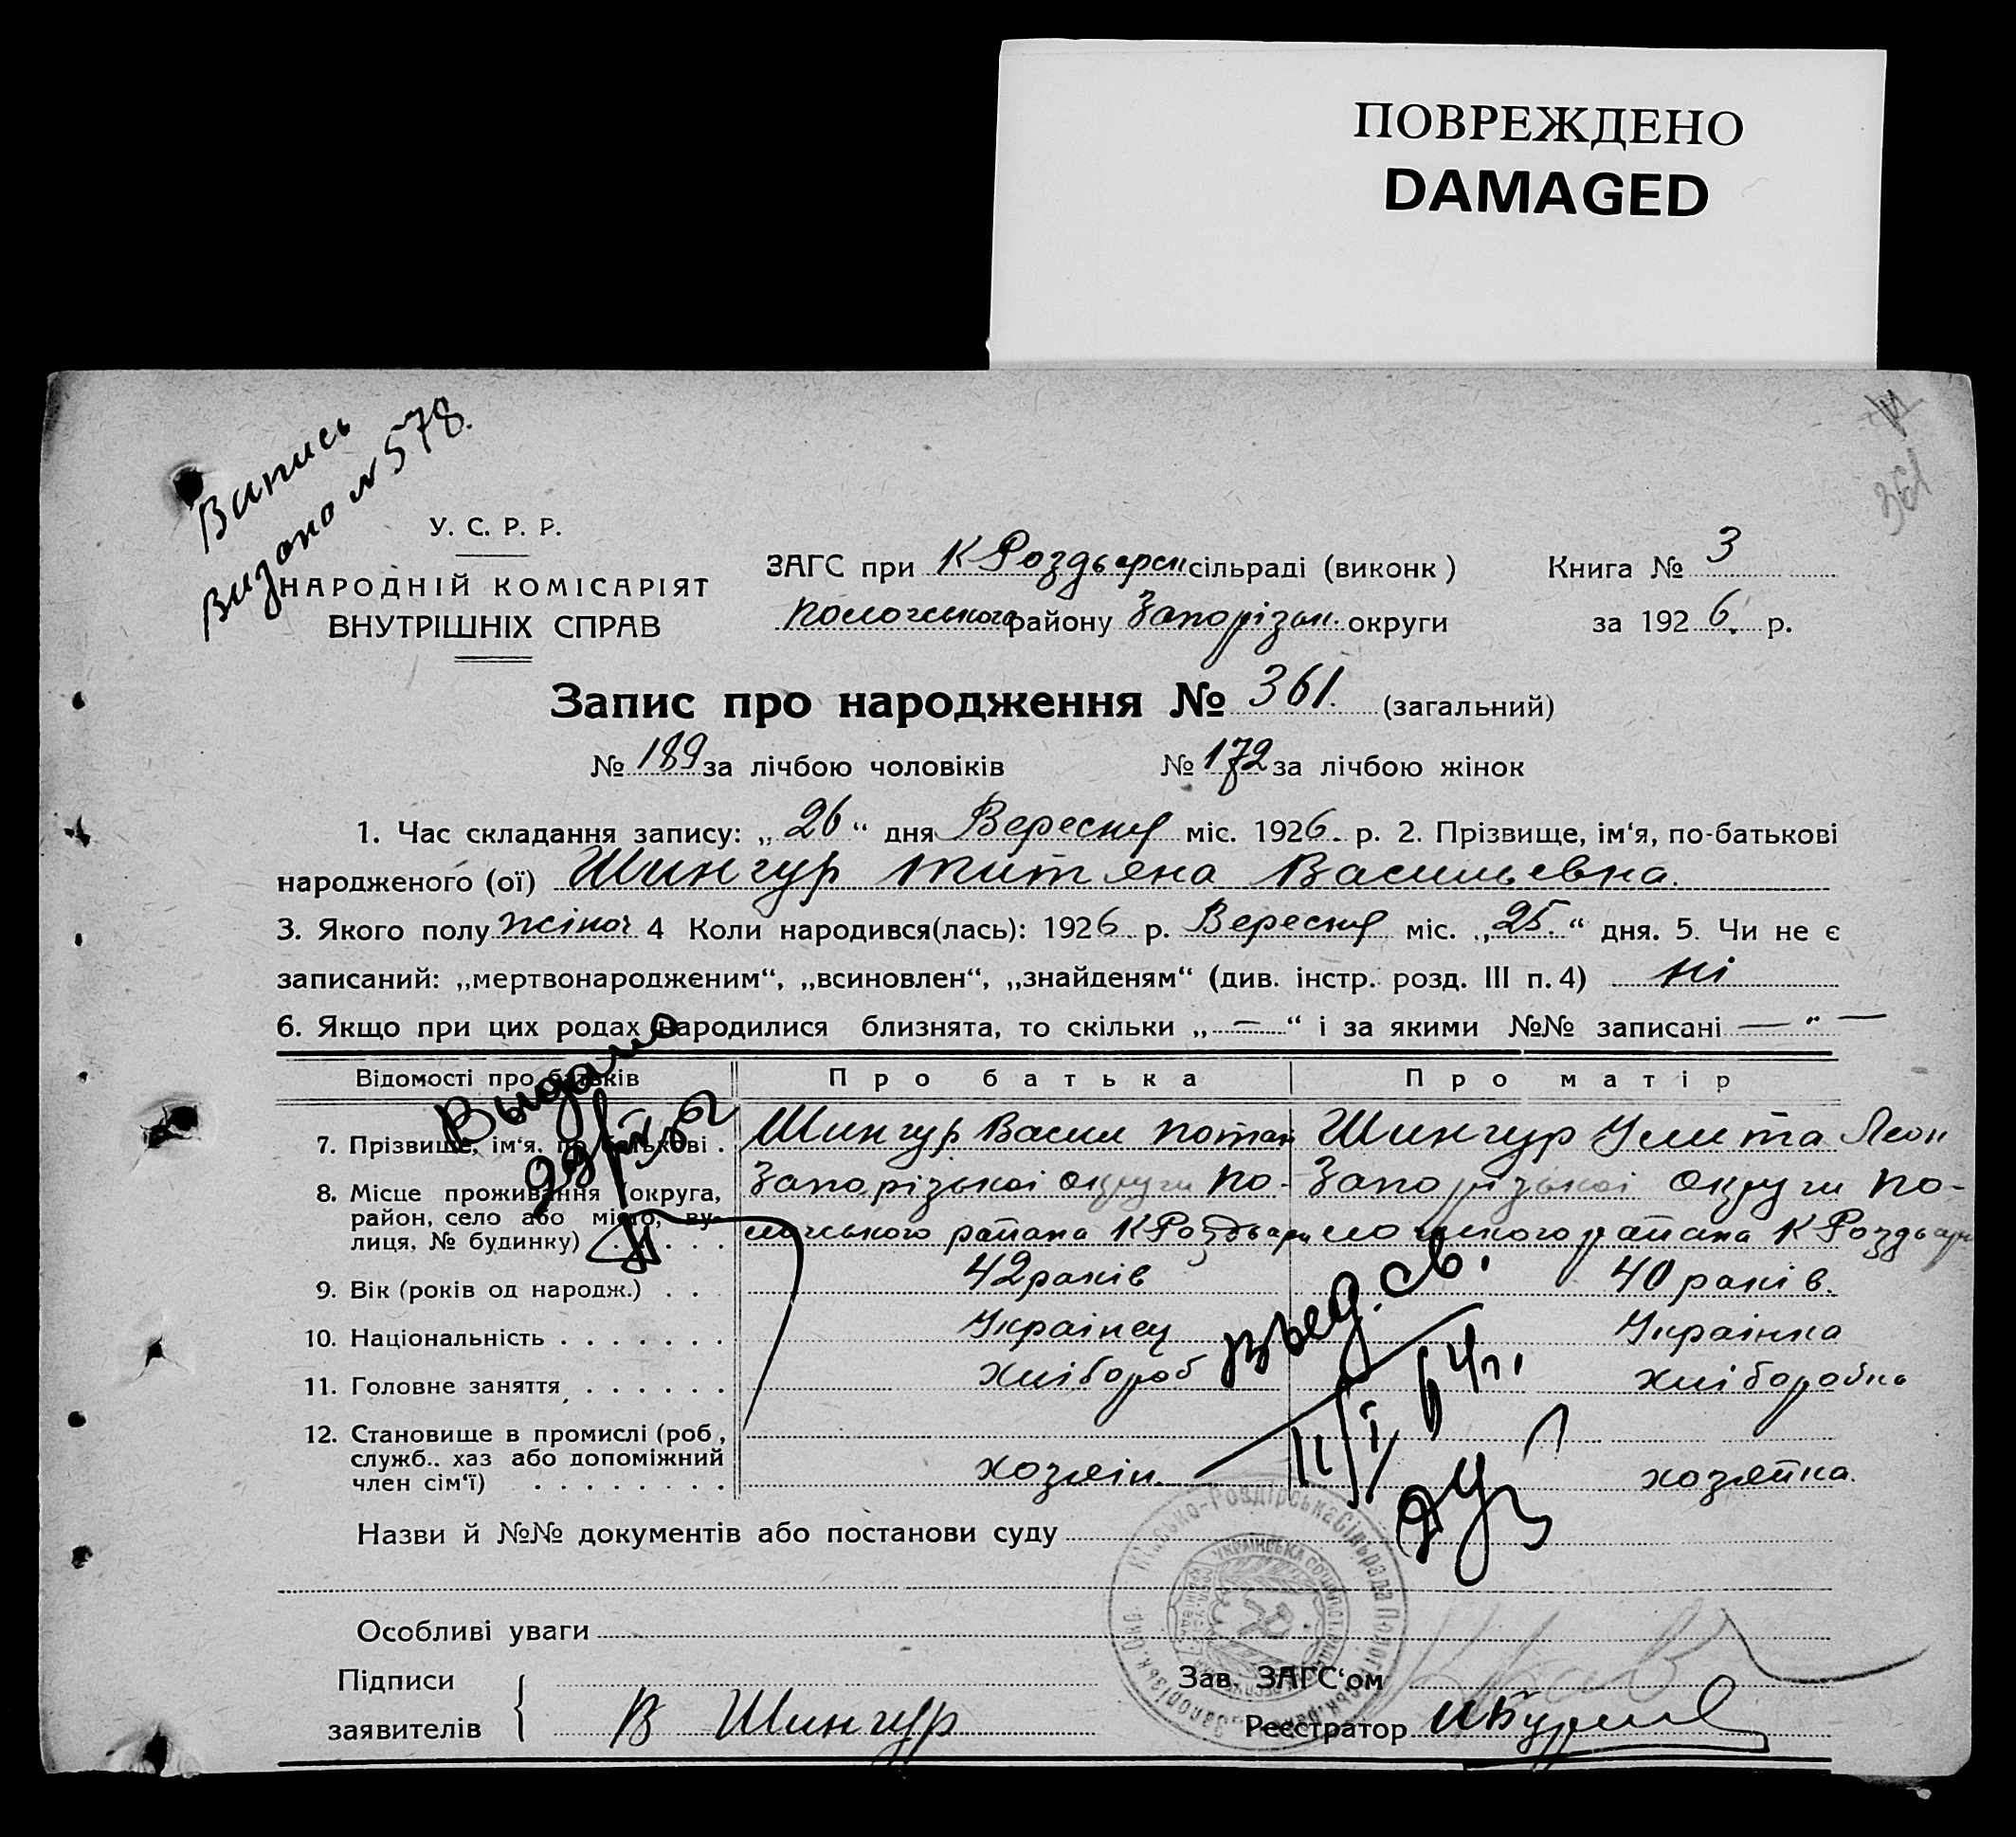 ПОВРЕЖДЕНО
DAMAGED
361
Випись
Видано № 578.
У. С. Р. Р.
НАРОДНІЙ КОМІСАРІЯТ
ВНУТРІШНІХ СПРАВ
ЗАГС при К Роздьорск сільраді (виконк) Книга № 3
Пологського району Запорізьк. округи за 1926. р.
Запис про народження № 361. (загальний)
№ 189 за лічбою чоловіків № 172 за лічбою жінок
1. Час складання запису: „26“ дня Вересня міс. 1926. р. 2. Прізвище, ім‘я, по-батькові
народженого (ої) Шингур Титяна Васильевна.
3. Якого полу жіноч 4 Коли народився(лась): 1926 р. Вересня міс. „25.“ дня. 5. Чи не є
записаний: „мертвонародженим“, „всиновлен“, „знайденям“ (див. інстр. розд. III п. 4) ні
6. Якщо при цих родах народилися близнята, то скільки „—“ і за якими №№ записані — “ —
Відомості про батьків Про батька Про матір
Выдано
7. Прізвище, ім‘я, по батькові . Шингур Васил Потап Шингур Улита Леон
8. Місце проживання (округа, Запорізької Округи По- Запорізької Округи По-
район, село або місто, ву- логського района К Роздьори логського района К Роздьори
лиця, № будинку) . . . . .
9. Вік (років од народж.) . . . 42 років 40 років.
10. Національність . . . . . . . Українец Українка
11. Головне заняття . . . . . . хлібороб хліборобка
12. Становище в промислі (роб,
служб.. хаз або допоміжний
член сім‘ї) . . . . . . . . хозяін. хозяйка.
выд. св.
11/I 64 г.
Назви й №№ документів або постанови суду
Кінсько-Роздірська Сільрада Пологськ. рай. Запорізьк. Окр.
Особливі уваги
Підписи Зав. ЗАГС‘ом
заявителів В Шингур Реєстратор